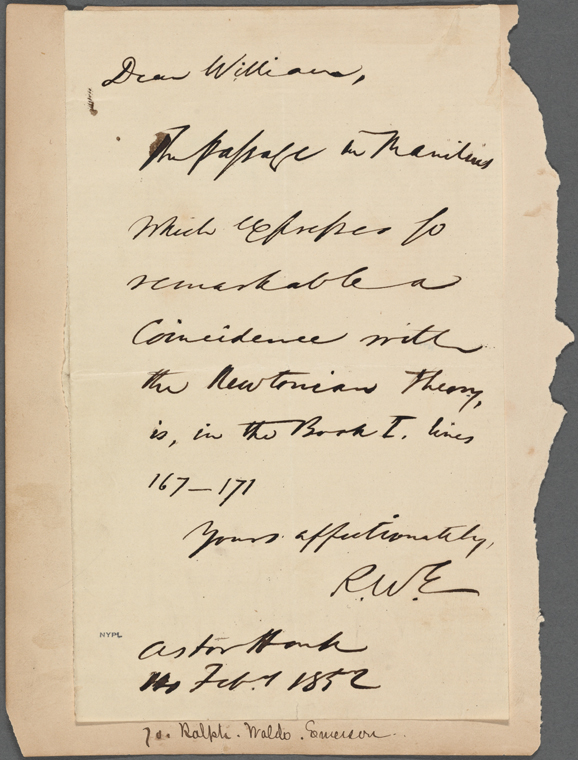 Dear William,
The passage in Manilius
which expresses so
remarkable a
Coincidence with
the Newtonian Theory,
is, in the Book I. lines
167—171
Yours affectionately,
R.W.E
NYPL
Astor House
Feby 1852
Ralph. Waldo. Emerson.